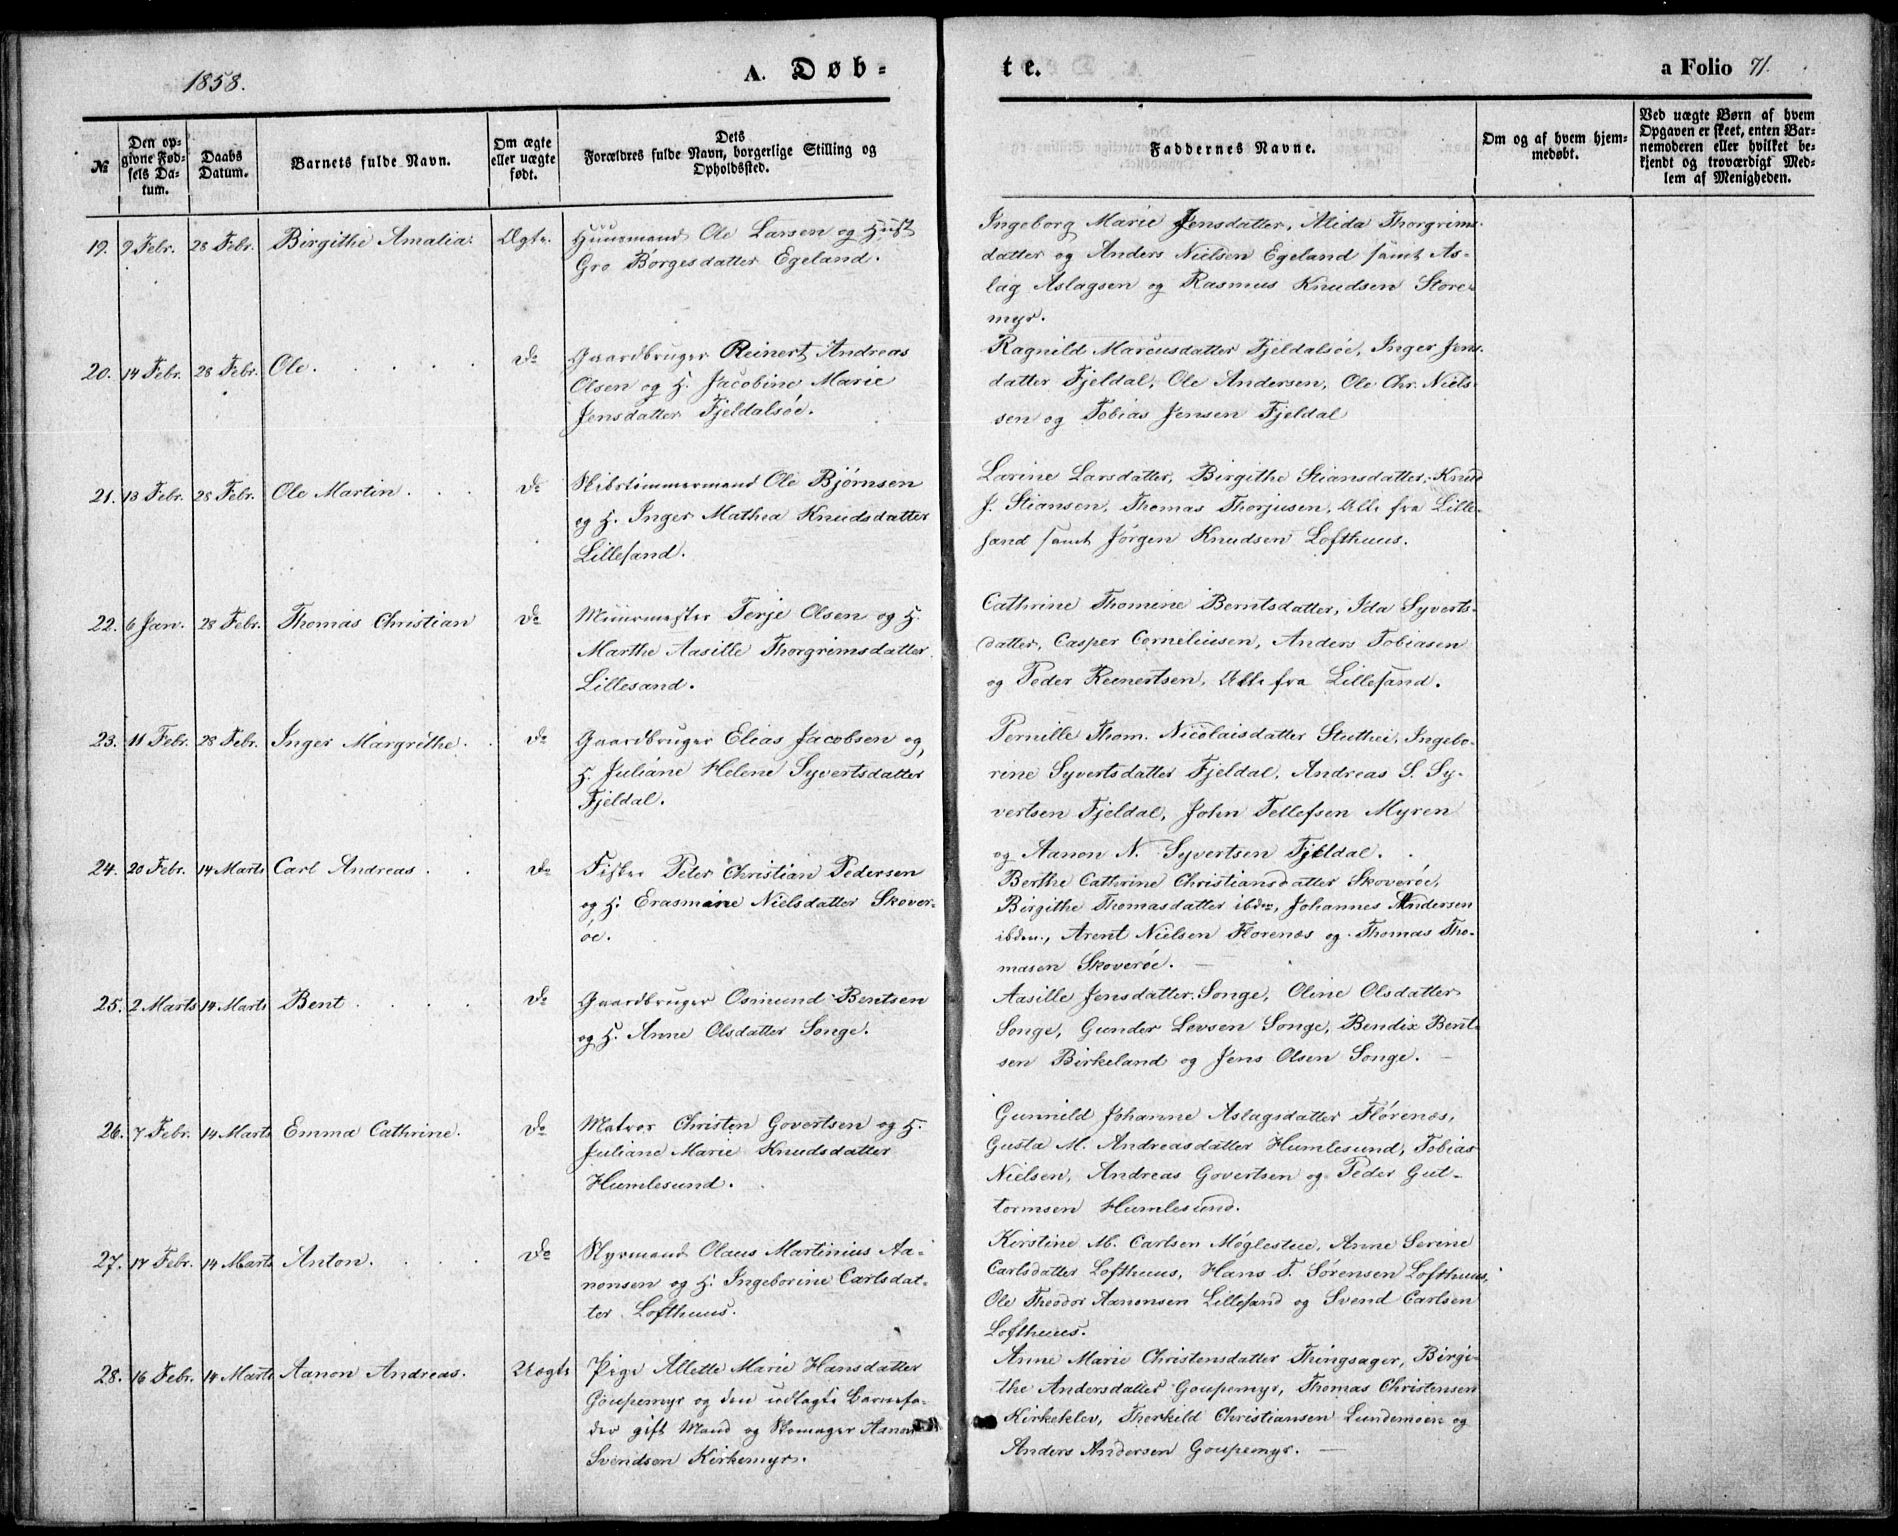 1858.
A. Døb-
te.
a Folio 71.
№
Den op-
givne Fød-
sels Da-
tum.
Daabs
Datum.
Barnets fulde Navn.
Om ægte
eller uægte
født.
Dets
Forældres fulde Navn, borgerlige Stilling og
Opholdssted.
Faddernes Navne.
Om og af hvem hjem-
medøbt.
Ved uægte Børn af hvem
Opgaven er skeet, enten Bar-
nemoderen eller hvilket be-
kjendt og troværdigt Med-
lem af Menigheden.
19. 9 Febr. 28 Febr. Birgithe Amalia. Ægte. Huusmand Ole Larsen og Hust
Gro Børgesdatter Egeland.
Ingeborg Marie Jensdatter, Alida Thorgrims-
datter og Anders Nielsen Egeland samt As-
lag Aslagsen og Rasmus Knudsen Store-
myr.
20. 14 Febr. 28 Febr. Ole. Do Gaardbruger Reinert Andreas
Olsen og H. Jacobine Marie
Jensdatter Fjeldalsøe.
Ragnild Marcusdatter Fjeldalsøe, Inger Jens-
datter Fjeldal, Ole Andersen, Ole Chr. Niels-
sen og Tobias Jensen Fjeldal
21. 13 Febr. 28 Febr. Ole Martin. Do Skibstømmermand Ole Bjørnsen
og H. Inger Mathea Knudsdatter
Lillesand.
Larine Larsdatter, Birgithe Stiansdatter, Knud
J. Stiansen, Thomas Thorjusen, Alle fra Lille-
sand samt Jørgen Knudsen Lofthuus.
22. 6 Jan. 28 Febr. Thomas Christian Do Muurmester Terje Olsen og H.
Marthe Aasille Thorgrimsdatter
Lillesand.
Cathrine Thomine Berntsdatter, Ida Syverts-
datter, Casper Corneliusen, Anders Tobiasen
og Peder Reinertsen, Alle fra Lillesand.
23. 11 Febr. 28 Febr. Inger Margrethe. Do Gaardbruger Elias Jacobsen og
H. Juliane Helene Syvertsdatter
Fjeldal.
Pernille Thom. Nicolaisdatter Stuthei, Ingebo-
rine Syvertsdatter Fjeldal, Andreas S. Sy-
vertsen Fjeldal, John Tellefsen Myren
og Aanon N. Syvertsen Fjeldal.
24. 20 Febr. 14 Marts Carl Andreas. Do Fisker Peter Christian Pedersen
og H. Erasmine Nielsdatter Skover-
øe.
Berthe Cathrine Christiansdatter Skoverøe,
Birgithe Thomasdatter ibdn, Johannes Andersen
ibdem., Arent Nielsen Florenæs og Thomas Tho-
masen Skoverøe. —
25. 2 Marts 14 Marts Bent Do Gaardbruger Osmund Bentsen
og H. Anne Olsdatter Songe.
Aasille Jensdatter Songe, Oline Olsdatter
Songe, Gunder Lovsen Songe, Bendix Bent-
sen Birkeland og Jens Olsen Songe. —
26. 7 Febr. 14 Marts Emma Cathrine. Do Matros Christen Govertsen og H.
Juliane Marie Knudsdatter
Humlesund.
Gunnild Johanne Aslagsdatter Flørenæs,
Gusta M. Andreasdatter Humlesund, Tobias
Nielsen, Andreas Govertsen og Peder Gut-
tormsen Humlesund.
27. 17 Febr. 14 Marts Anton. Do Styrmand Olaus Martinius Aa-
nonsen og H. Ingeborine Carlsdat-
ter Lofthuus.
Kirstine M. Carlsen Møglestue, Anne Serine
Carlsdatter Lofthuus, Hans T. Sørensen Lofthuus,
Ole Theodor Aanonsen Lillesand og Svend Carlsen
Lofthuus.
28. 16 Febr. 14 Marts Aanon Andreas. Uægte Pige Allette Marie Hansdatter
Goupemyr og den udlagte Barnefa-
der gift Mand og Skomager Aanon
Svendsen Kirkemyr.
Anne Marie Christensdatter Thingsager, Birgi-
the Andersdatter Goupemyr, Thomas Christensen
Kirkeklev, Therkild Christiansen Lundemoen og
Anders Andersen Goupemyr. —